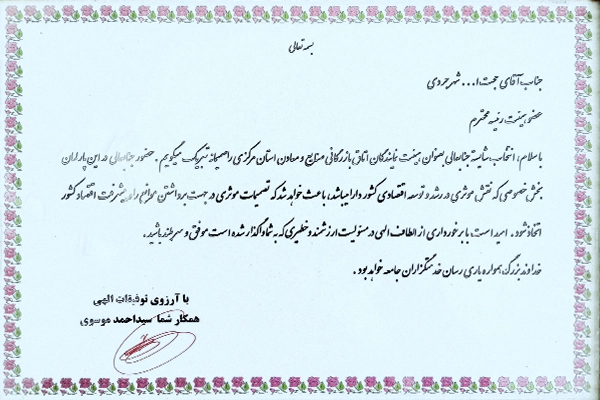 بسمه تعالی
جناب آقای حجت ا... شهرجردی
عضو هیئت رئیسه محترم
با سلام، انتخاب شایسته جنابعالی بعنوان هیئت نمایندگان اتاق بازرگانی صنایع و معادن استان مرکزی را صمیمانه تبریک میگویم. حضور جنابعالی در این پاران
بخش خصوصی که نقش موثری در رشد و توسعه اقتصادی کشور دارا میباشد، باعث خواهد شد که تصمیمات موثری در جهت برداشتن موانع راه پیشرفت اقتصاد کشور
اتخاذ شود. امید است با برخورداری از الطاف الهی در مسئولیت ارزشمند و خطیری که به شما واگذار شده است موفق و سربلند باشید.
خداوند بزرگ همواره یاری رسان خدمتگزاران جامعه خواهد بود.
با آرزوی توفیقات الهی
همکار شما سیداحمد موسوی